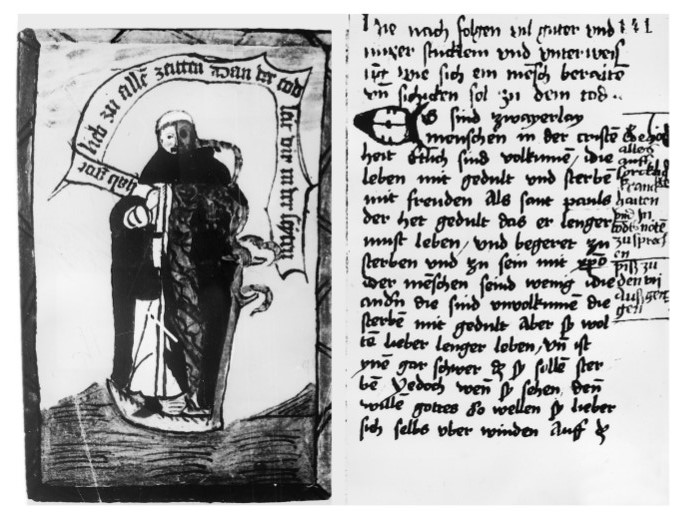 hab got
lieb zu allē zeitten Wan der tod
Hie nach folgen vil guter vnd 141
nuczer stucklein vnd vnterweis
ūg wie sich ein mēsch beraite
vn̄ schicken sol zu dem tod
Es sind zwayerlay
menschen in der cristē
heit Etlich sind volkumē, die
leben mit gedult vnd sterbē
mit freuden Als sant pauls
der het gedult das er lenger
must leben, vnd begeret zu
sterben vnd zu sein mit xp̄o
der mēschen seind wenig, die
andn̄ die sind vnvolkumē die
sterbē mit gedult Aber sy wol
tē lieber lenger leben, vn̄ ist
ynē gar schwer dz sy sullē ster
bē Yedoch wen̄ sy sehen den̄
wille gottes So wellen sy lieber
sich selbs vber winden Auff dz
alles
auff
haiten
vnd in
zu sprech
en
piß zu
den vij
auß gen
gen